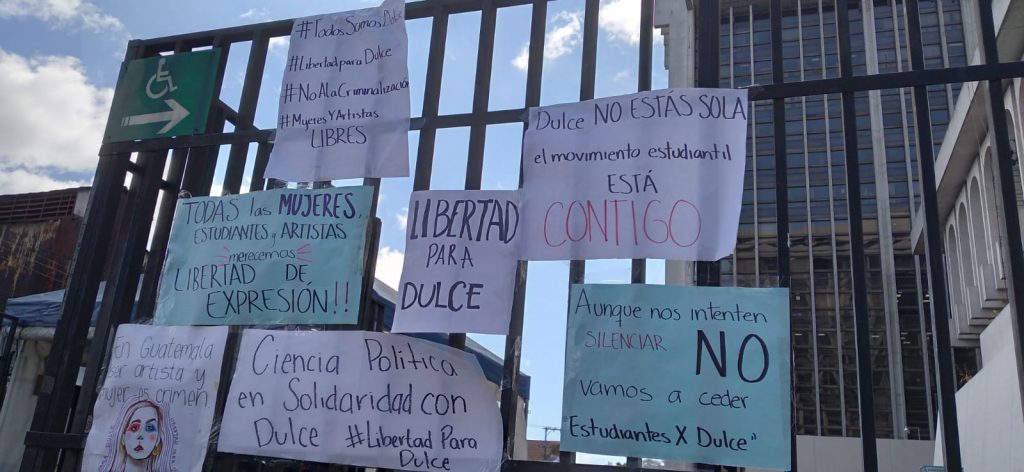 #TodosSomosDulce
#LibertadparaDulce
#NoAlaCriminalización
#MujeresYArtistas
LIBRES
Dulce NO ESTÁS SOLA
el movimiento estudiantil
ESTÁ
CONTIGO
TODAS las MUJERES,
ESTUDIANTES y ARTISTAS
merecemos
LIBERTAD DE
EXPRESIÓN!!
LIBERTAD
PARA
DULCE
Aunque nos intenten
SILENCIAR NO
vamos a ceder
"Estudiantes X Dulce"
En Guatemala
ser artista y
mujer es crimen.
Ciencia Política
en Solidaridad con
Dulce #Libertad Para
Dulce